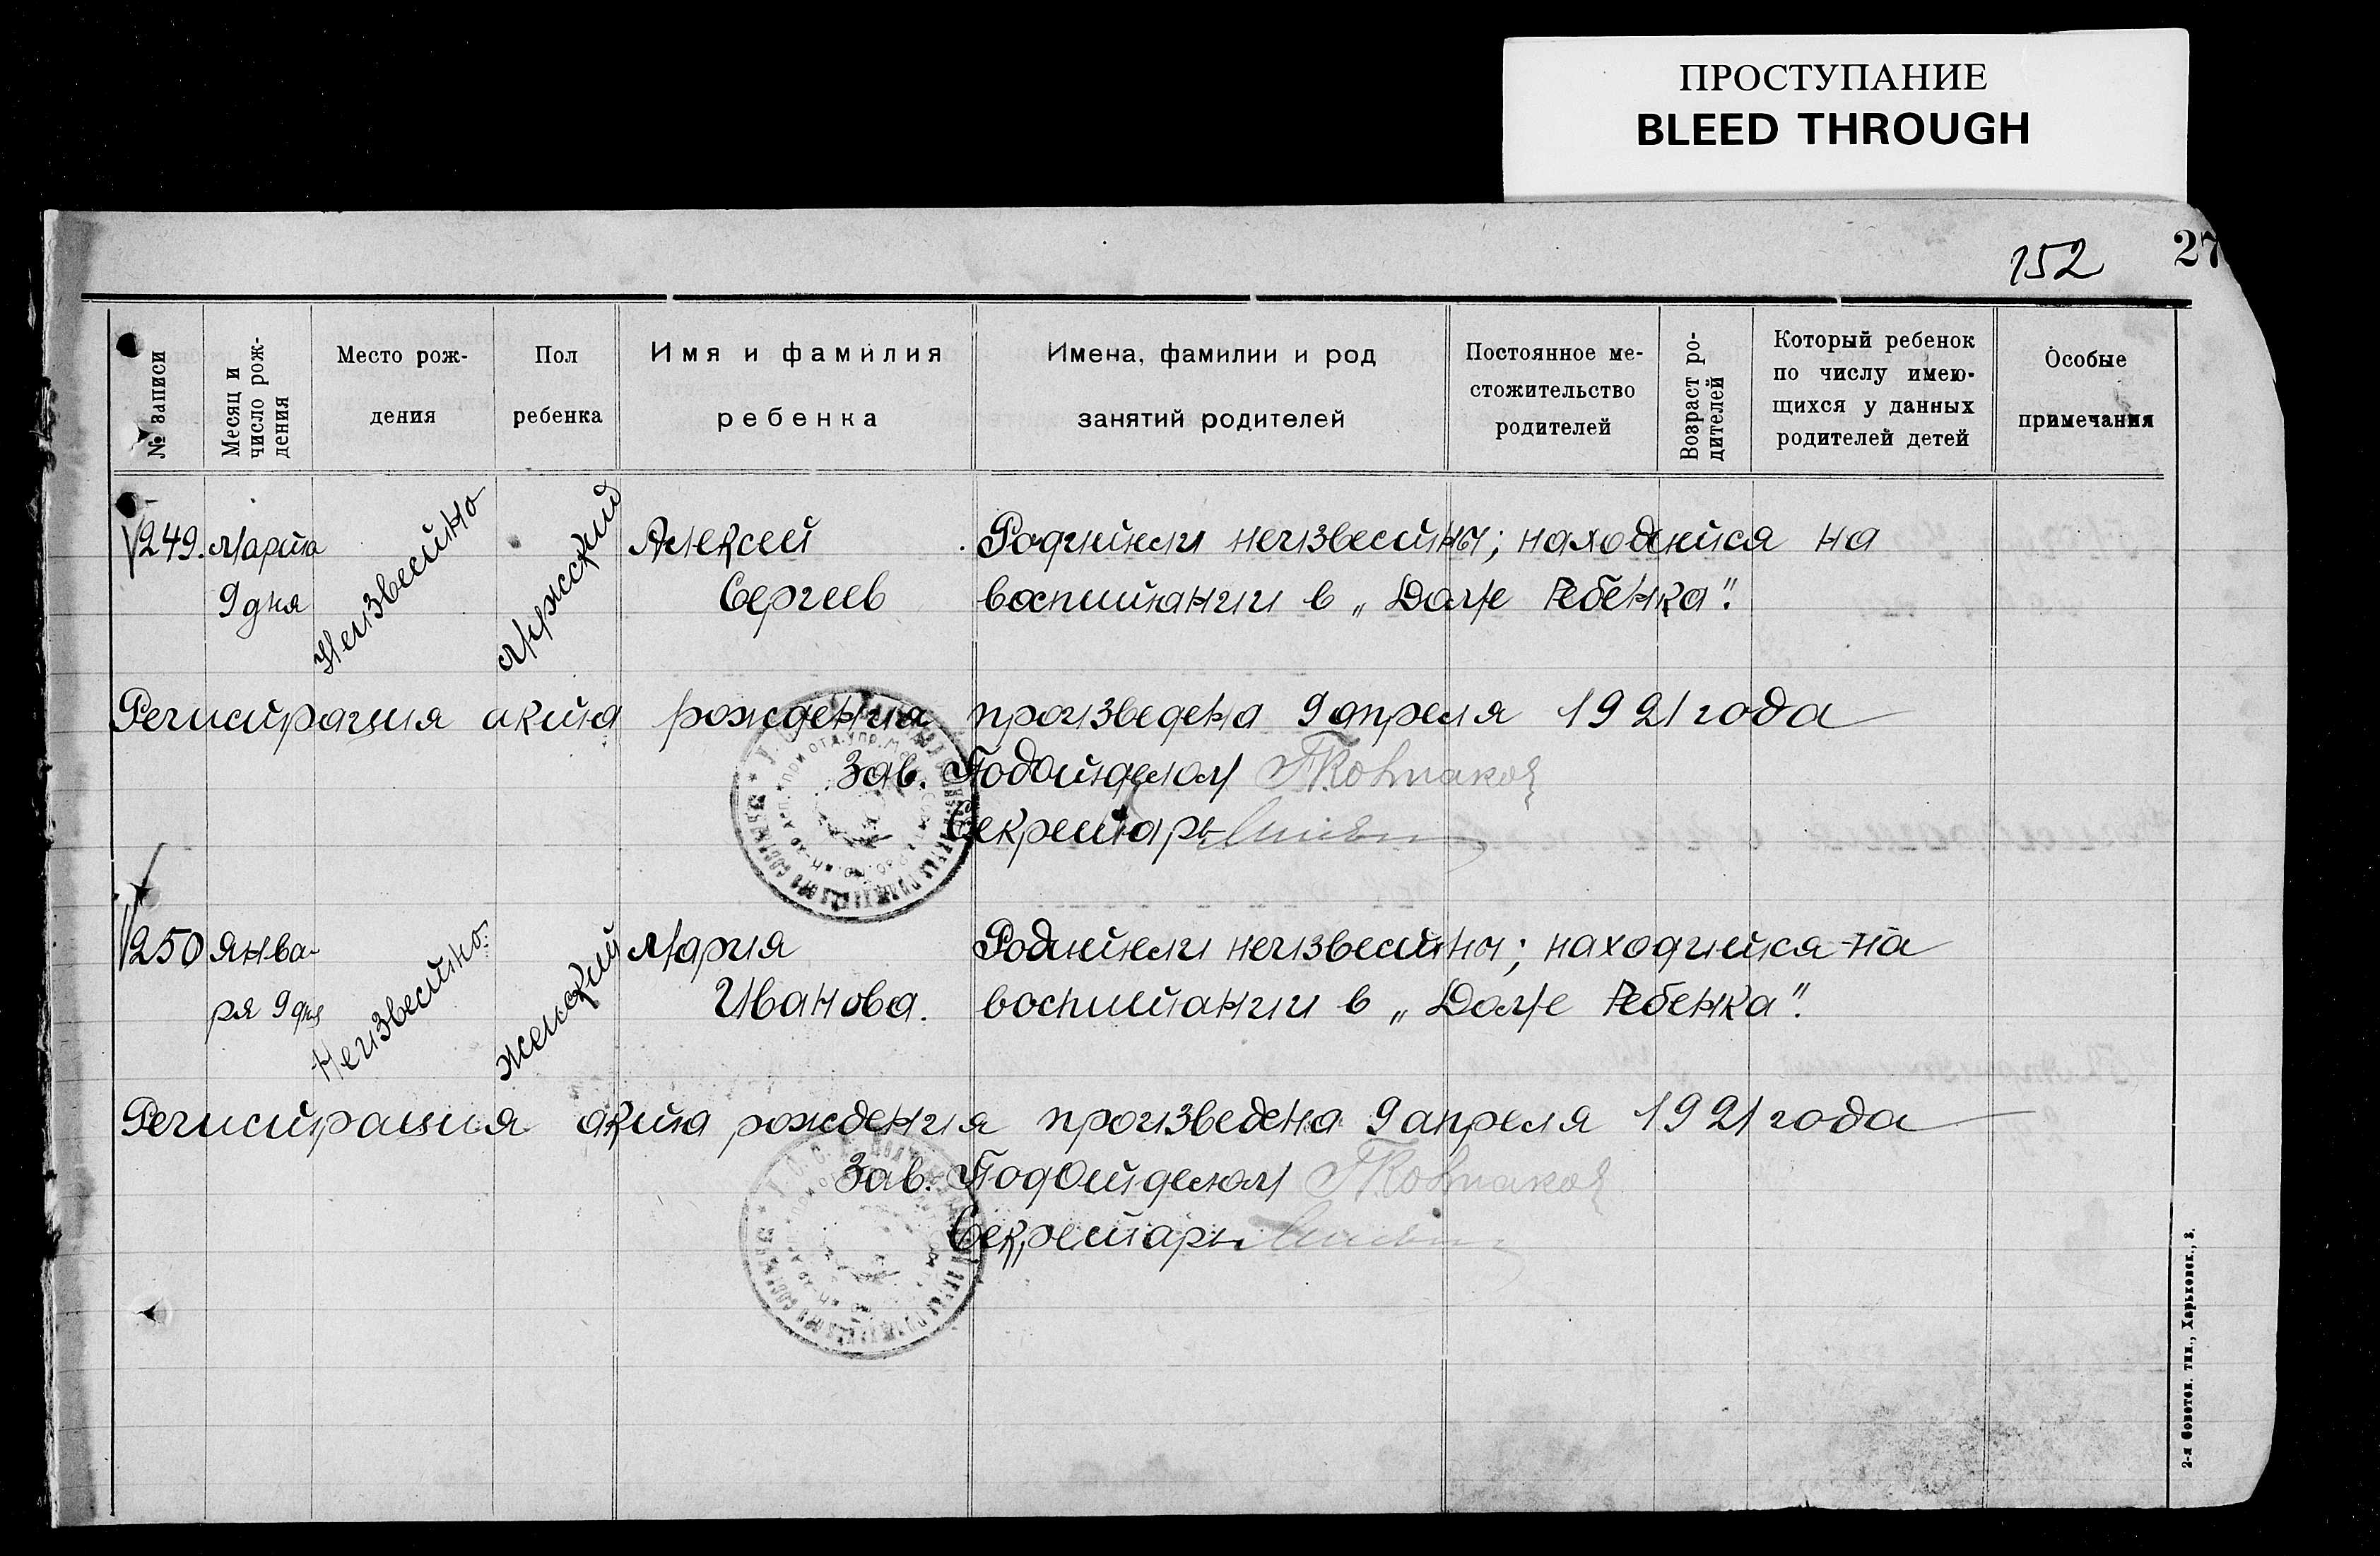 ПРОСТУПАНИЕ
BLEED THROUGH
152
27
№ записи
Месяц и
число рож-
дения
Место рож-
дения
Пол
ребенка
Имя и фамилия
ребенка
Имена, фамилии и род
занятий родителей
Постоянное ме-
стожительство
родителей
Возраст ро-
дителей
Который ребенок
по числу имею-
щихся у данных
родителей детей
Особые
примечания
249. Марта
9 дня
Неизвестно
Мужской
Алексей
Сергеев
Родители неизвестны; находится на
воспитании в „Доме Ребенка".
Регистрация акта рождения произведена 9 апреля 1921 года
Зав. Подотделом
Секретарь
250 Янва-
ря 9 дня
Неизвестно.
Женский
Мария
Иванова.
Родители неизвестны; находится на
воспитании в „Доме Ребенка".
Регистрация акта рождения произведена 9 апреля 1921 года
Зав. Подотделом
Секретарь
2-я Советск. тип., Харьковск., 3.